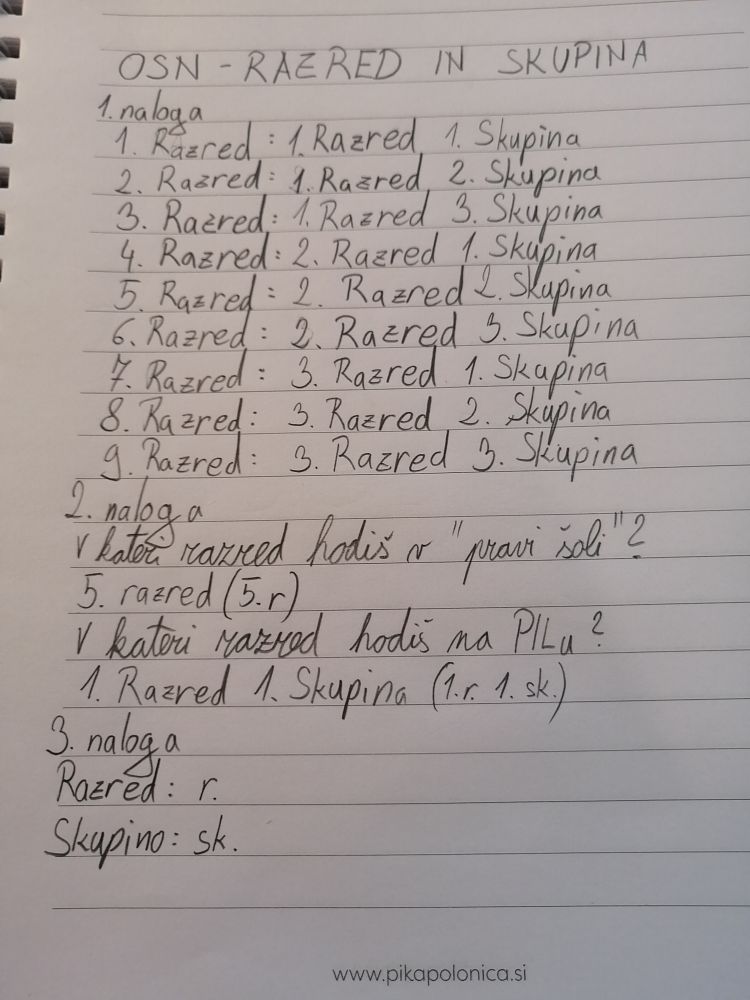 OSN - RAZRED IN SKUPINA
1. naloga
1. Razred : 1. Razred 1. Skupina
2. Razred : 1. Razred 2. Skupina
3. Razred : 1. Razred 3. Skupina
4. Razred : 2. Razred 1. Skupina
5. Razred : 2. Razred 2. Skupina
6. Razred : 2. Razred 3. Skupina
7. Razred : 3. Razred 1. Skupina
8. Razred : 3. Razred 2. Skupina
9. Razred : 3. Razred 3. Skupina
2. naloga
V kateri razred hodiš v "pravi šoli"?
5. razred (5.r)
V kateri razred hodiš na PILu?
1. Razred 1. Skupina (1.r. 1. sk.)
3. naloga
Razred : r.
Skupino : sk.
www.pikapolonica.si